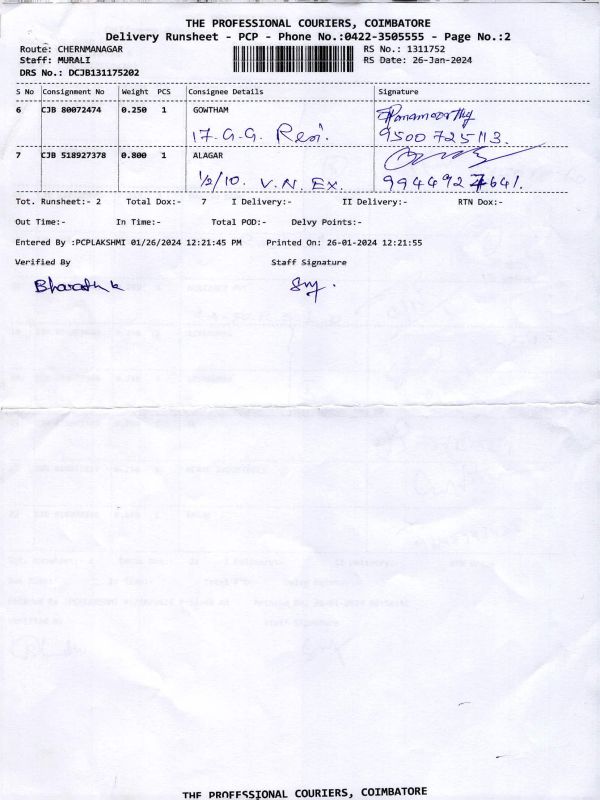 THE PROFESSIONAL COURIERS, COIMBATORE
Delivery Runsheet - PCP - Phone No.:0422-3505555 - Page No.:2
Route: CHERNMANAGAR RS No.: 1311752
Staff: MURALI RS Date: 26-Jan-2024
DRS No.: DCJB131175202
S No Consignment No Weight PCS Consignee Details Signature
6 CJB 80072474 0.250 1 GOWTHAM
17. G.G. Resi. 9500 725113.
7 CJB 518927378 0.800 1 ALAGAR
1/2/10. V.N. Ex. 9944927641.
Tot. Runsheet:- 2 Total Dox:- 7 I Delivery:- II Delivery:- RTN Dox:-
Out Time:- In Time:- Total POD:- Delvy Points:-
Entered By :PCPLAKSHMI 01/26/2024 12:21:45 PM Printed On: 26-01-2024 12:21:55
Verified By Staff Signature
Bharath k
THE PROFESSIONAL COURIERS, COIMBATORE